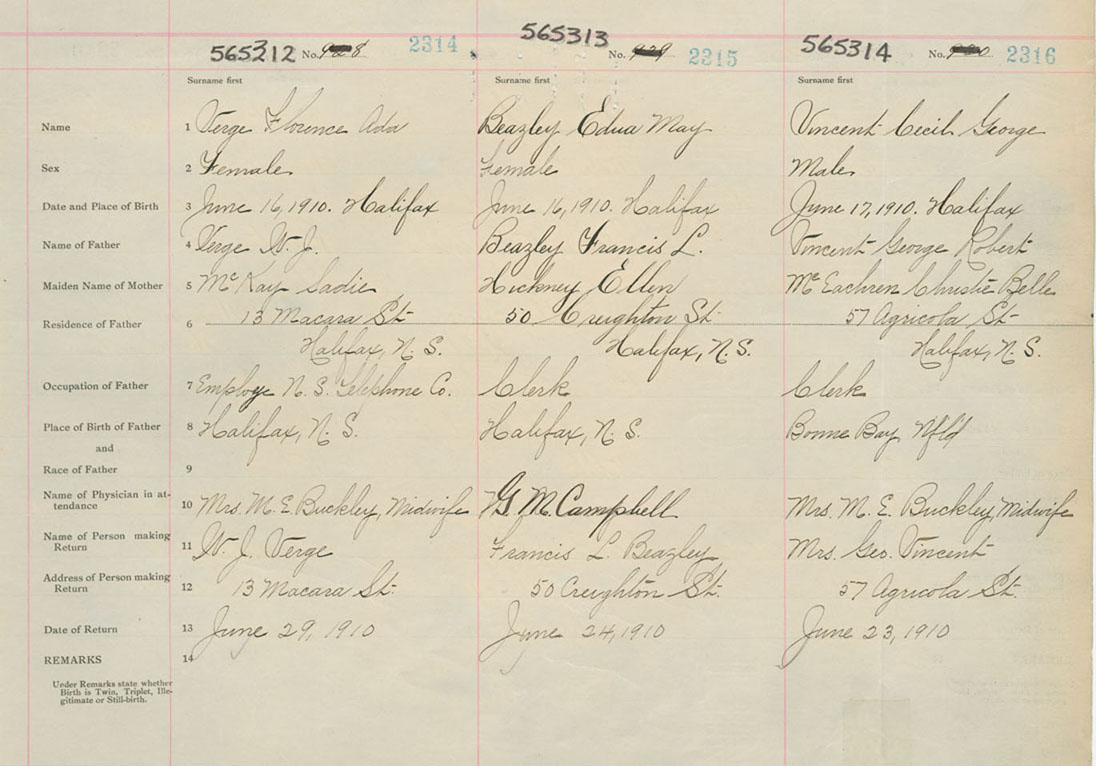 565312 No. 928 2314 565313 No. 929 2315 565314 No. 2316
Surname first Surname first Surname first
Name 1 Verge Florence Ada Beazley Edna May Vincent Cecil George
Sex 2 Female Female Male
Date and Place of Birth 3 June 16, 1910. Halifax June 16, 1910. Halifax June 17, 1910. Halifax
Name of Father 4 Verge W. J. Beazley Francis L. Vincent George Robert
Maiden Name of Mother 5 McKay Sadie Hickney Ellen McEachren Christie Belle
Residence of Father 6 13 Macara St. 50 Creighton St. 57 Agricola St.
Halifax, N. S. Halifax, N. S. Halifax, N. S.
Occupation of Father 7 Employe N. S. Telephone Co. Clerk Clerk
Place of Birth of Father 8 Halifax, N. S. Halifax, N. S. Bonne Bay Nfld
and
Race of Father 9
Name of Physician in at-
tendance 10 Mrs. M. E. Buckley, Midwife G. M. Campbell Mrs. M. E. Buckley, Midwife
Name of Person making
Return 11 W. J. Verge Francis L. Beazley Mrs. Geo. Vincent
Address of Person making
Return 12 13 Macara St. 50 Creighton St. 57 Agricola St.
Date of Return 13 June 29, 1910 June 24, 1910 June 23, 1910
REMARKS 14
Under Remarks state whether
Birth is Twin, Triplet, Ille-
gitimate or Still-birth.